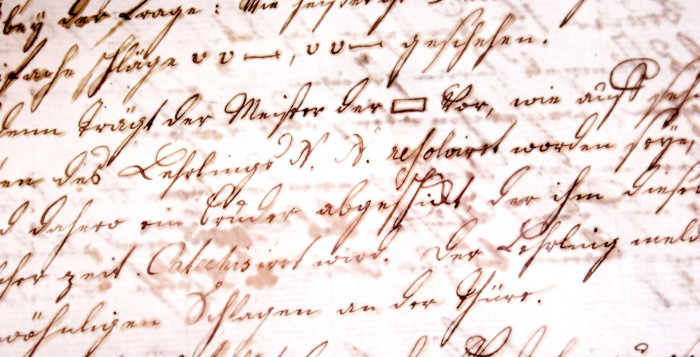 bey der Frage: Wie
fache Schläge v v —, v v — geschehen.
denn trägt der Meister der ▭ vor, wie auf
en des Lehrlings N. N. resolvirt worden seye,
d dahero ein Bruder abgeschickt, der ihm diese
cher zeit. Catechisirt wird. Der Lehrling meld
wöhnligen Schlagen an der Thüre.